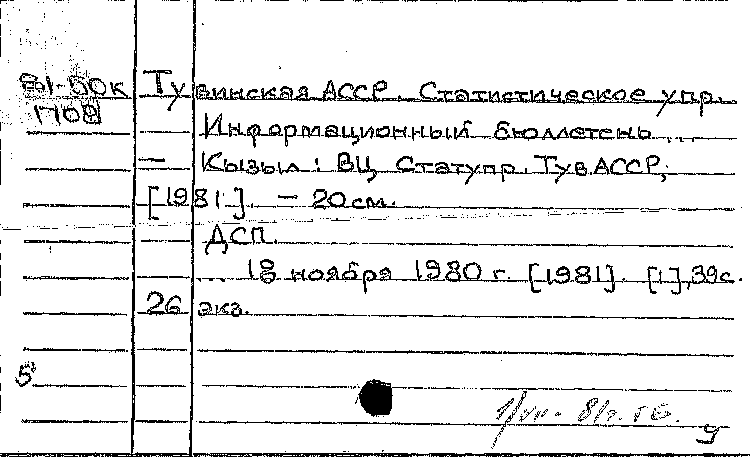 81-50к Тувинская АССР. Статистическое упр.
1708
Информационный бюллетень ...
— Кызыл: ВЦ Статупр. Тув.АССР,
[1981]. — 20 см.
ДСП.
... 18 ноября 1980 г. [1981]. [1], 39 с.
26 экз.
5